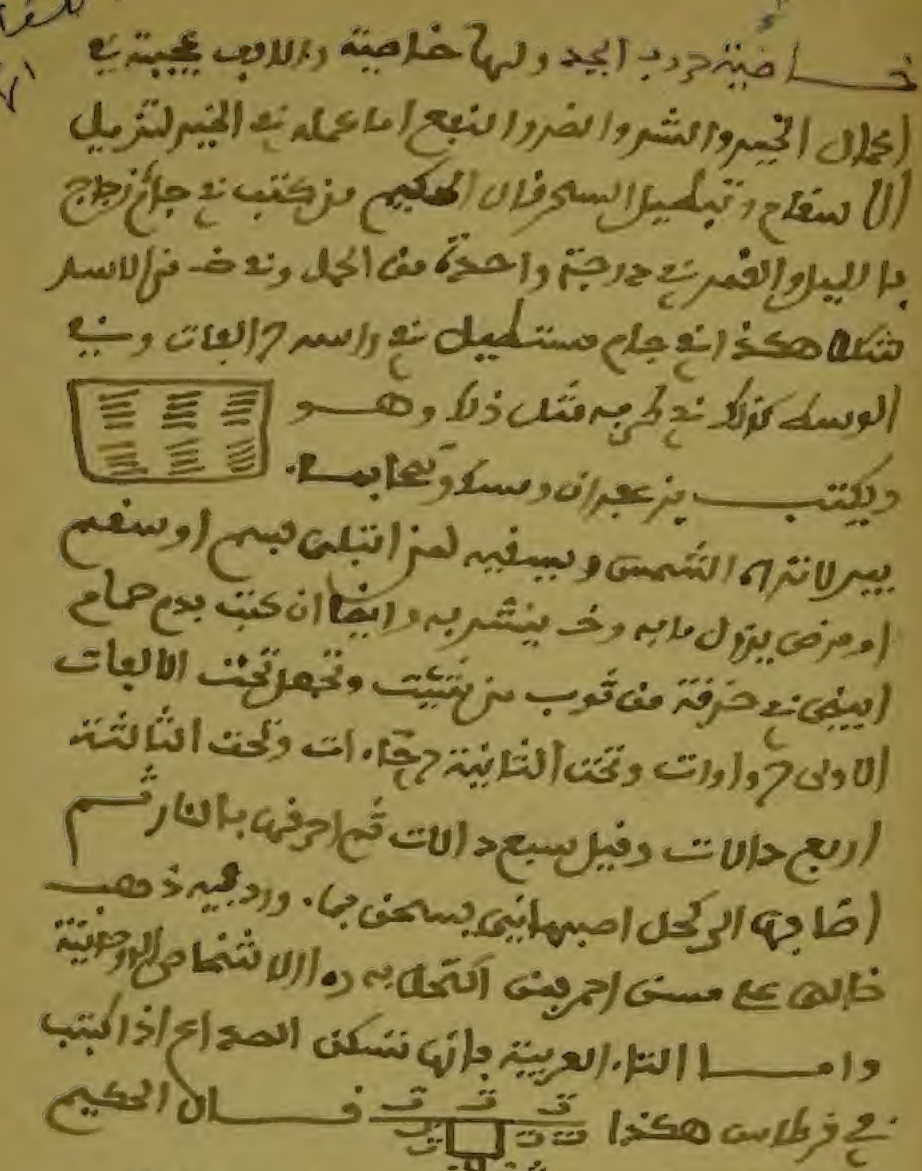 خاصية حروب ابجد ولها خاصية عجيبة في
اعمال الخير والشر والضر والنفع اما عمله في الخير لتزيل
الاسقام وتبطيل السحر قال الحكيم من كتب في جام زجاج
بالليل والقمر في درجة واحدة من الحمل
شكلا هكذا في جام مستطيل في راسه ٦ الفات وفي
الوسط كذلك في طربه مثل ذلك وهو
ويكتب بزعفران ومسك
ببير لا تراه الشمس ويسقيه لمن ابتلى بسم او سقم
او مرض يزول ما به وايضا ان كتبت بدم حمام
ابيض في خرقة من ثوب وتجعل تحت الالفات
الاولى ٦ واوات وتحت الثانية ٦ وتحت الثالثة
اربع دالات وقيل سبع دالات ثم احرقها بالنار ثم
اضابها الى كحل اصبهاني يسحق ذهب
خالص على مسن احمر بمن اكتحل به را الاشخاص الروحانية
واما التاء العربية فانها تسكن الصداع اذا كتبت
في قرطاس هكذا ت ت ت ت ت ت ت قال الحكيم